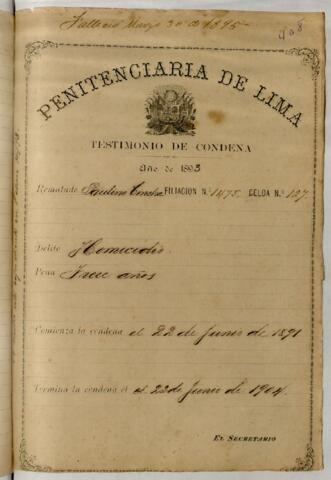 Falleció Marzo 30 de 1895
408
PENITENCIARIA DE LIMA
TESTIMONIO DE CONDENA
Año de 1893
Rematado Paulino Concha FILIACION N.º 1475. CELDA N.º 127.
Delito Homicidio
Pena Trece años
Comienza la condena el 22 de Junio de 1891
Termina la condena el el 22 de Junio de 1904.
EL SECRETARIO